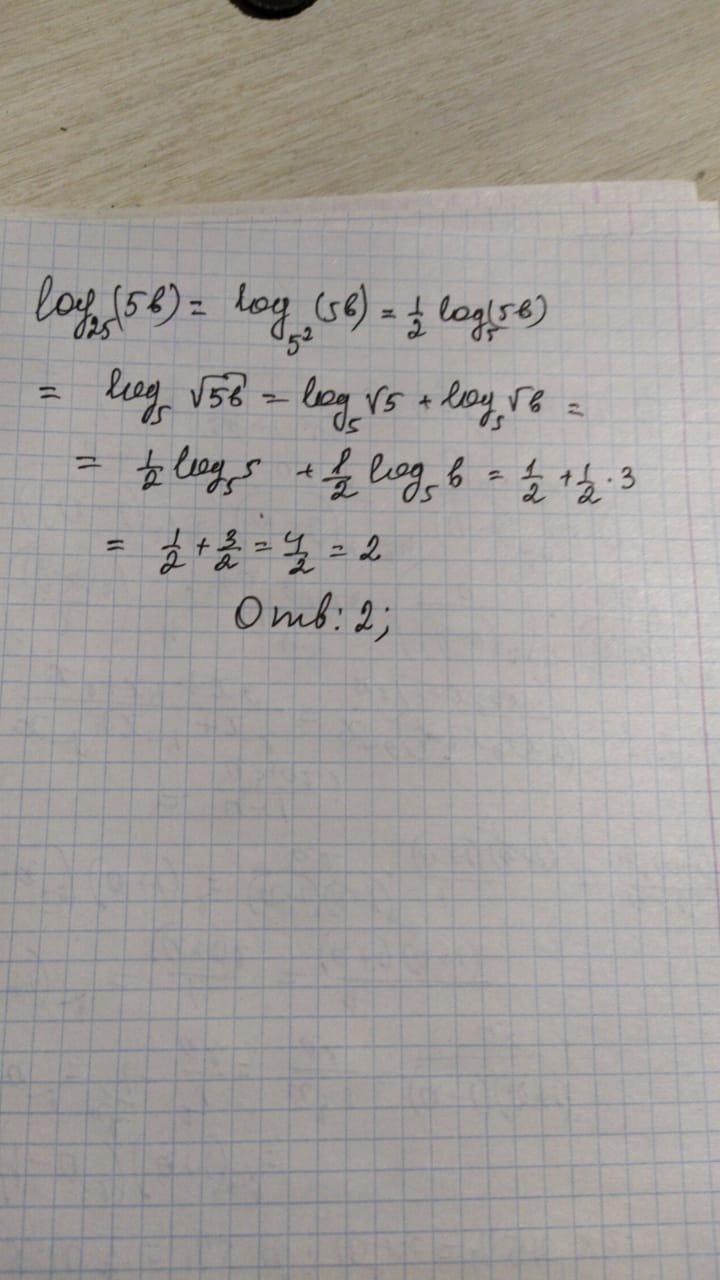 log₂₅(5b) = log₅²(5b) = 1/2 log₅(5b)
= log₅ √5b = log₅ √5 + log₅ √b =
= 1/2 log₅ 5 + 1/2 log₅ b = 1/2 + 1/2 · 3
= 1/2 + 3/2 = 4/2 = 2
Отв: 2;